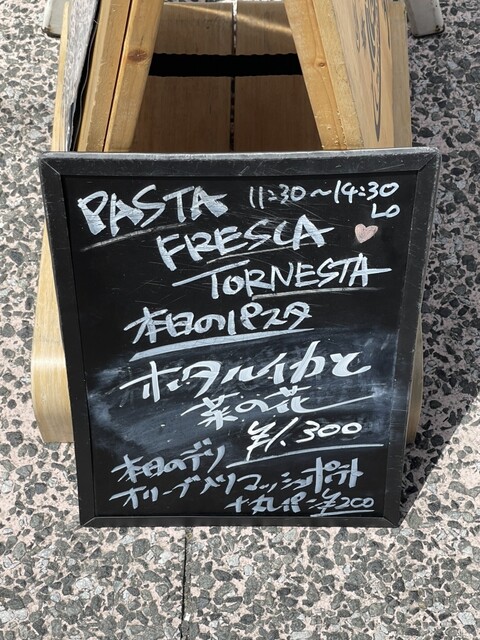 PASTA 11:30~14:30
LO
FRESCA
TORNESTA
本日のパスタ
ホタルイカと
菜の花
¥1.300
本日のデリ
オリーブ入りマッシュポテト
+丸パン¥200